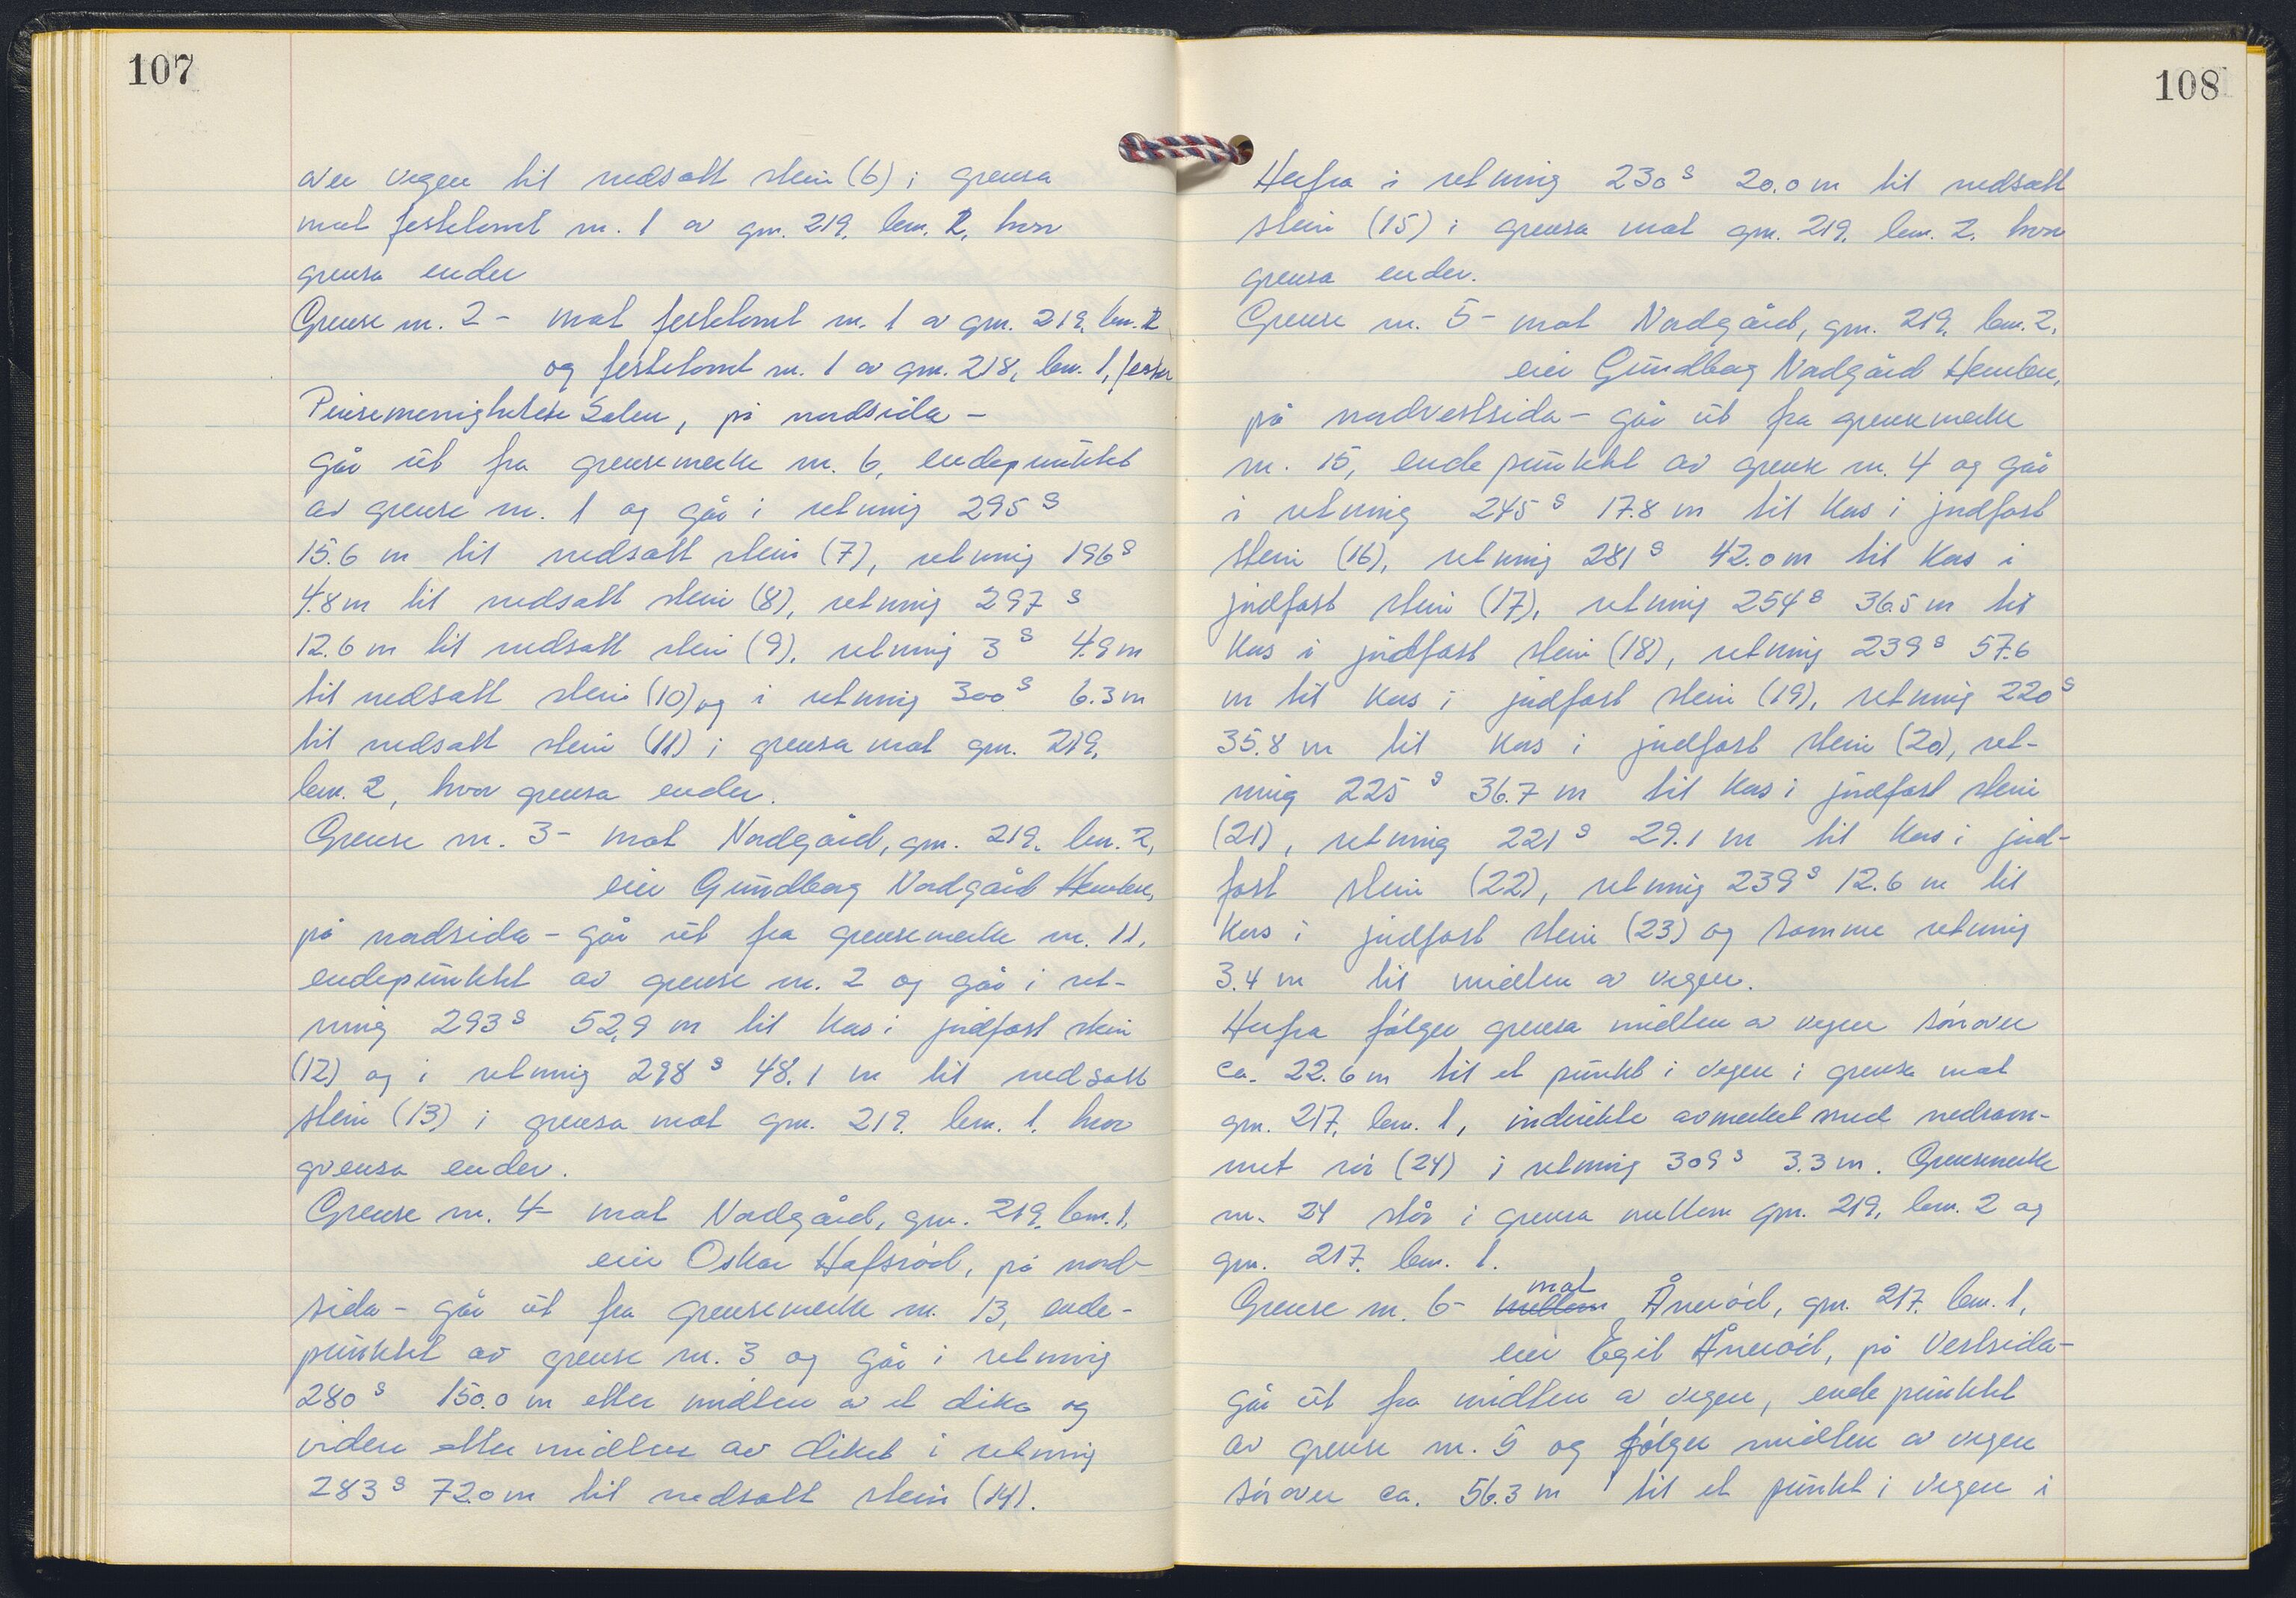 107
over vegen til nedsatt stein (6) i grensa
mot festetomt nr. 1 av gnr. 219, bnr. 2, hvor
grensa ender
Grense nr. 2 - mot festetomt nr. 1 av gnr. 219, bnr. 2
og festetomt nr. 1 av gnr. 218, bnr. 1, fester
Pinsemenigheten Salen, på nordsida -
går ut fra grensemerke nr. 6, endepunktet
av grense nr. 1 og går i retning 295 g
15.6 m til nedsatt stein (7), retning 196 g
4.8 m til nedsatt stein (8), retning 297 g
12.6 m til nedsatt stein (9), retning 3 g 4.9 m
til nedsatt stein (10) og i retning 300 g 6.3 m
til nedsatt stein (11) i grensa mot gnr. 219,
bnr. 2, hvor grensa ender.
Grense nr. 3 - mot Nordgård, gnr. 219, bnr. 2,
eier Gundborg Nordgård Hemben,
på nordsida - går ut fra grensemerke nr. 11,
endepunktet av grense nr. 2 og går i ret-
ning 293 g 52,9 m til kors i jordfast stein
(12) og i retning 298 g 48.1 m til nedsatt
stein (13) i grensa mot gnr. 219, bnr. 1, hvor
grensa ender.
Grense nr. 4 - mot Nordgård, gnr. 219, bnr. 1,
eier Oskar Hafsrød, på nord-
sida - går ut fra grensemerke nr. 13, ende-
punktet av grense nr. 3 og går i retning
280 g 150.0 m etter midten av et dike og
videre etter midten av diket i retning
283 g 72.0 m til nedsatt stein (14).
108
Herfra i retning 230 g 20.0 m til nedsatt
stein (15) i grensa mot gnr. 219, bnr. 2, hvor
grensa ender.
Grense nr. 5 - mot Nordgård, gnr. 219, bnr. 2,
eier Gundborg Nordgård Hemben,
på nordvestsida - går ut fra grensemerke
nr. 15, endepunktet av grense nr. 4 og går
i retning 245 g 17.8 m til kors i jordfast
stein (16), retning 281 g 42.0 m til kors i
jordfast stein (17), retning 254 g 36.5 m til
kors i jordfast stein (18), retning 239 g 57.6
m til kors i jordfast stein (19), retning 220 g
35.8 m til kors i jordfast stein (20), ret-
ning 225 g 36.7 m til kors i jordfast stein
(21), retning 221 g 29.1 m til kors i jord-
fast stein (22), retning 239 g 12.6 m til
kors i jordfast stein (23) og samme retning
3.4 m til midten av vegen.
Herfra følger grensa midten av vegen sørover
ca. 22.6 m til et punkt i vegen i grensa mot
gnr. 217, bnr. 1, indirekte avmerket med nedram-
met rør (24) i retning 309 g 3.3 m. Grensemerke
nr. 24 står i grensa mellom gnr. 219, bnr. 2 og
gnr. 217, bnr. 1.
Grense nr. 6 - mellom mot Ånerød, gnr. 217, bnr. 1,
eier Egil Ånerød, på Vestsida -
går ut fra midten av vegen, endepunktet
av grense nr. 5 og følger midten av vegen
sørover ca. 56.3 m til et punkt i vegen i